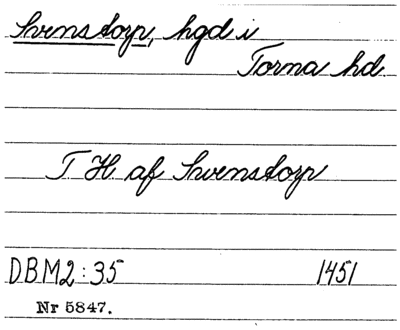 Svenstorp, hgd i
Torna hd.
T H. af Swenstorp
DBM2:35 1451
Nr 5847.